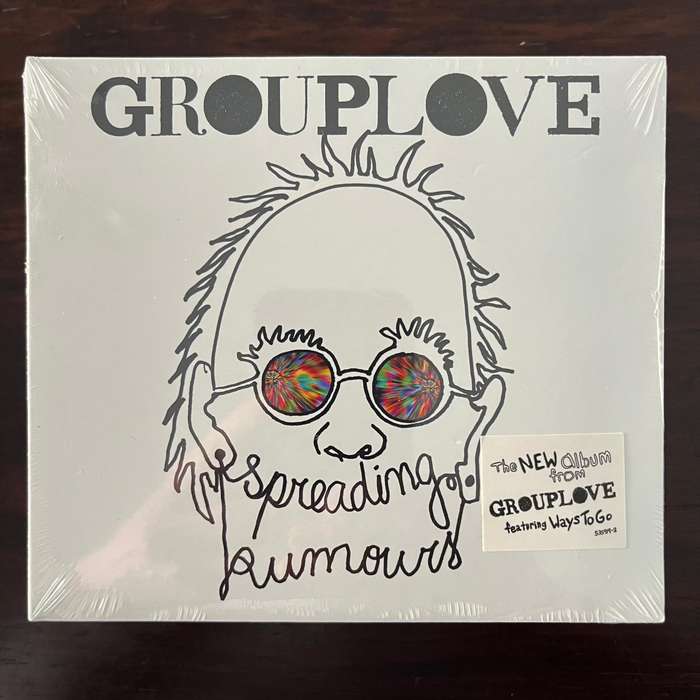 GROUPLOVE
spreading
Rumours
The NEW album
from
GROUPLOVE
featuring Ways To Go